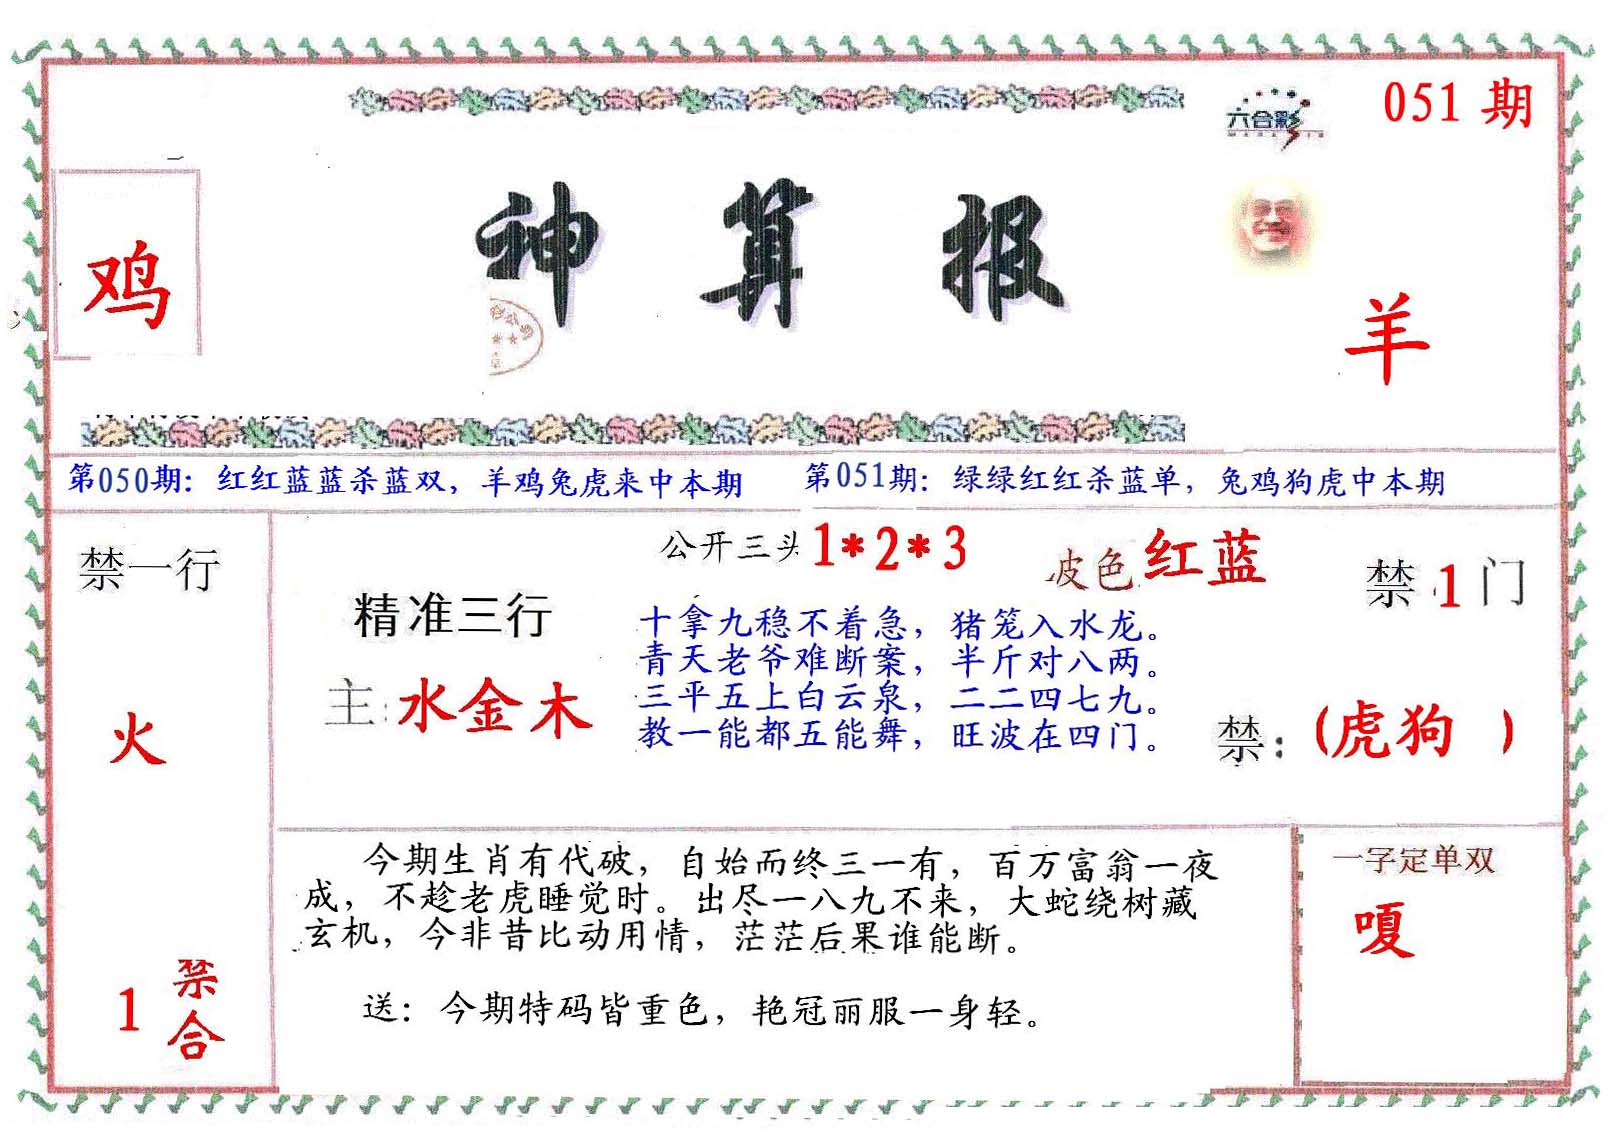 六合彩
051期
鸡
神算报
羊
第050期：红红蓝蓝杀蓝双，羊鸡兔虎来中本期
第051期：绿绿红红杀蓝单，兔鸡狗虎中本期
禁一行
火
1
禁合
精准三行
主:水金木
公开三头1*2*3
波色红蓝
十拿九稳不着急，猪笼入水龙。
青天老爷难断案，半斤对八两。
三平五上白云泉，二二四七九。
教一能都五能舞，旺波在四门。
禁1门
禁:(虎狗 )
今期生肖有代破，自始而终三一有，百万富翁一夜
成，不趁老虎睡觉时。出尽一八九不来，大蛇绕树藏
玄机，今非昔比动用情，茫茫后果谁能断。
送：今期特码皆重色，艳冠丽服一身轻。
一字定单双
嗄